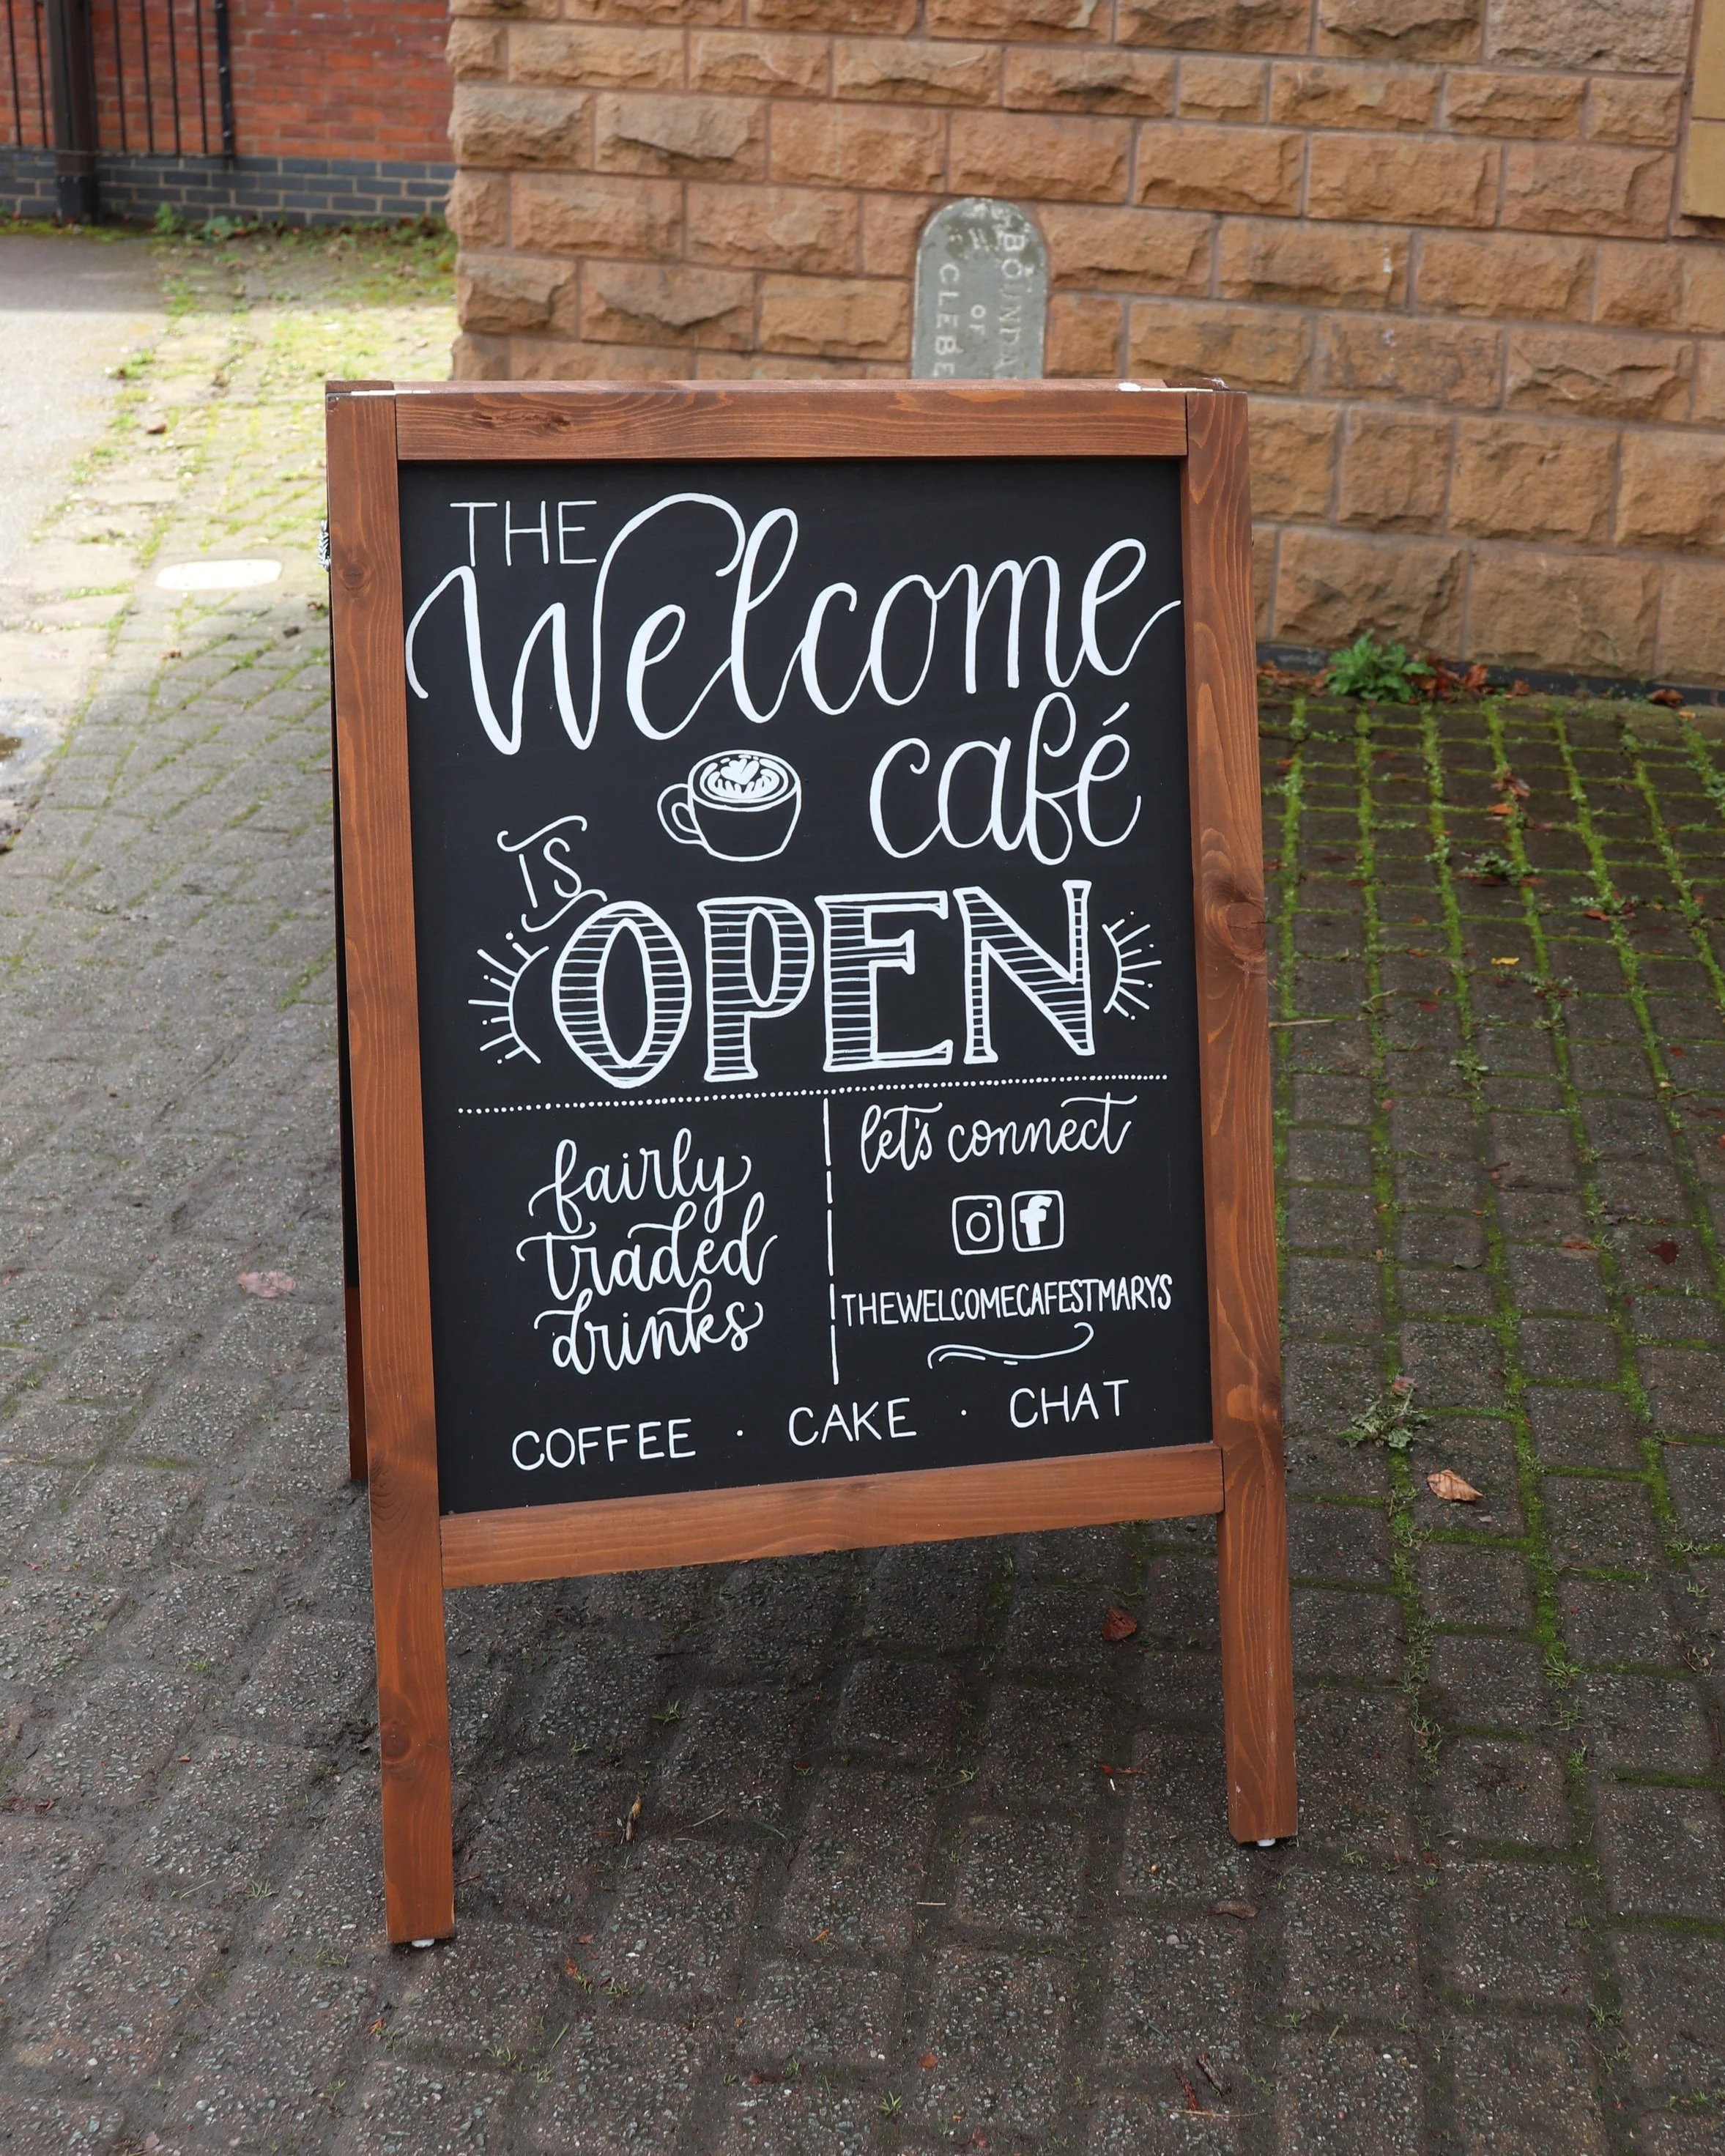 BOUNDA
OF
CLEBE
THE
Welcome
café
IS
OPEN
fairly
traded
drinks
let's connect
THEWELCOMECAFESTMARYS
COFFEE · CAKE · CHAT